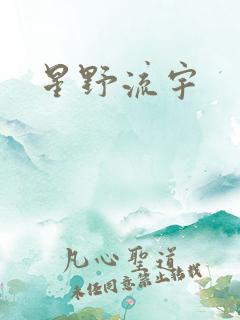 星野流宇
凡心聖道
未经同意禁止转载